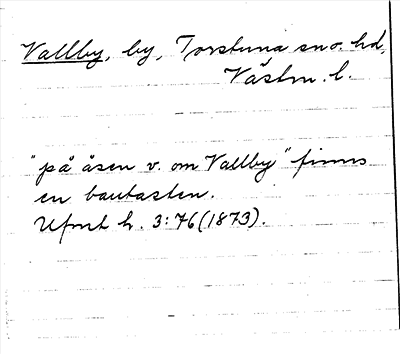 Vallby, by, Torstuna sn o. hd,
Västm. l.
"på åsen v. om Vallby" finns
en bautasten.
Ufmt h. 3:76 (1873).